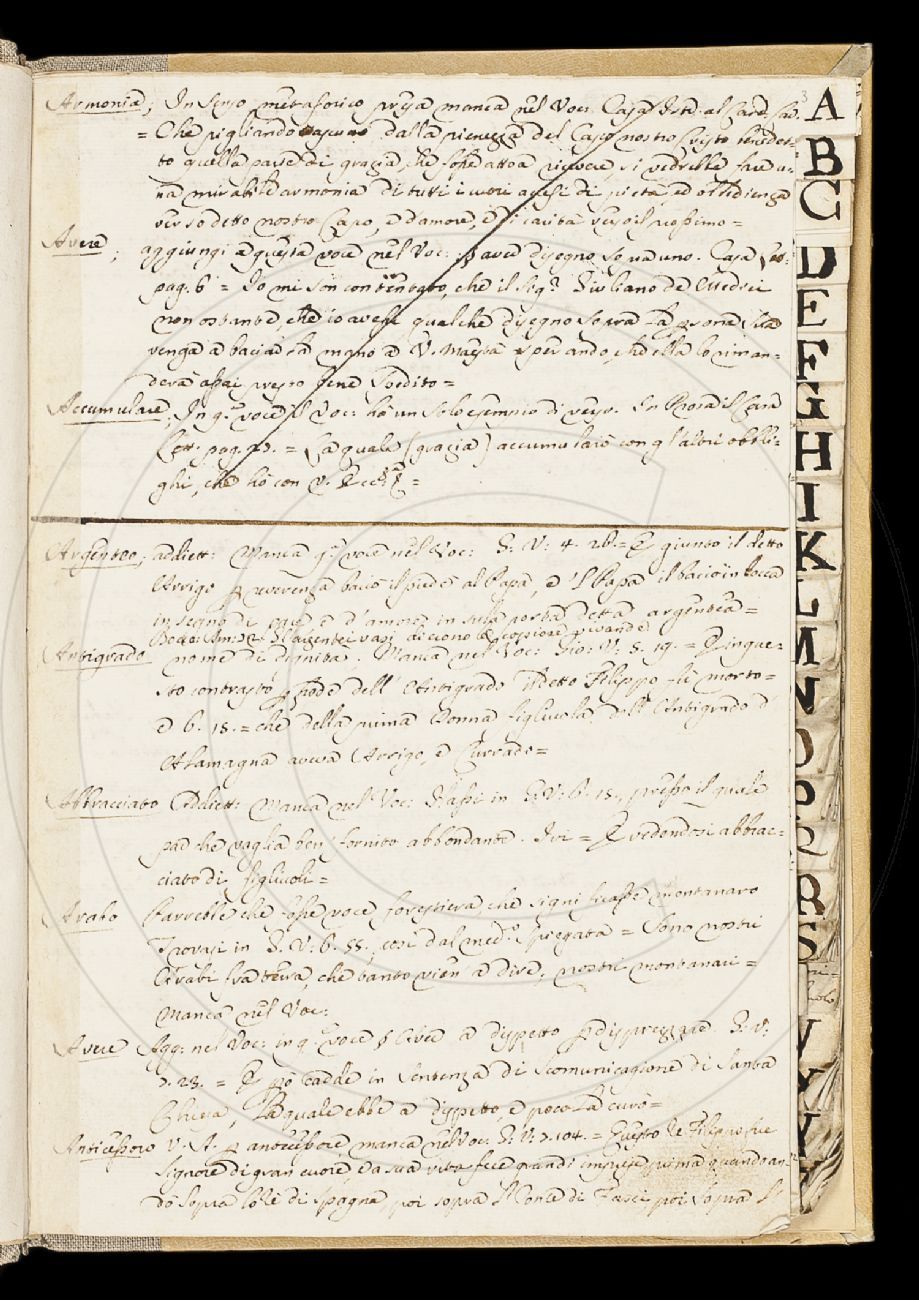 3
Armonia; In senso metaforico presa manca nel Voc: Casa Istr. al Card. Car.
= Che pigliando ciascuno dalla pienezza del Capo nostro Cristo benedet-
to quella parte di grazia, che fosse atto a ricevere, si vedrebbe fare u-
na mirabile armonia di tutti i cuori accesi di pietà, ed obbedienza
verso detto nostro Capo, e d'amore, e di carità verso il prossimo =
Avere; aggiungi a questa voce nel Voc: § aver disegno sopra uno. Casa
pag. 6 = Io mi son contentato, che il Sigr. Giuliano de Medici
non ostante, che io avessi qualche disegno sopra la persona sua
venga a baciar la mano a V. Maestà sperando, che ella lo riman-
derà assai presto bene spedito =
Accumulare; In qa. voce il Voc: ha un solo esempio di verso. In Prosa il Casa
Lett: pag. = La quale (grazia) accumulerò con gl'altri obbli-
ghi, che hò con V. Ecc.
Argenteo; addiett: Manca qa. voce nel Voc: G: V: 4. 28. = E giunto il detto
Arrigo per reverenza baciò il piede al Papa, e 'l Papa il baciò in bocca
in segno di pace e d'amore in sulla porta detta argentea =
argentei vasi dicono vivande
Antigrado nome di dignità. Manca nel Voc: Gio: V: 5. 19. = E in que-
sto contrasto prode dell' Antigrado il detto Filippo fù morto =
e 6. 18. = che della prima Donna figliuola dell' Antigrado d'
Alamagna aveva Arrigo, e Currado =
Abbracciato Addiett: Manca nel Voc: Hassi in G: V: 6. 18., presso il quale
par che vaglia ben fornito abbondante. Ivi = E vedendosi abbrac-
ciato di figliuoli =
Arabo Parrebbe che fosse voce forestiera, che significasse montanaro
Trovasi in G: V: 6. 55., così dal medo. spiegata = Sono nostri
Arabi fra terra, che tanto vien a dire, nostri montanari =
Manca nel Voc:
Avere Agg: nel Voc: in qa. voce § Avere a dispetto per disprezzare. G: V:
7. 23. = E poi cadde in sentenza di scomunicazione di Santa
Chiesa, la quale ebbe a dispetto, e poco la curò =
Anticessoro V. A. per antecessore, manca nel Voc: G: V: 7. 104. = Questo Re Filippo fue
Signore di gran cuore, e a sua vita fece grandi imprese prima quando an-
dò sopra lo Re di Spagna, poi sopra 'l Conte di Fusci, poi sopra 'l
A
B
C
D
E
F
G
H
I
K
L
M
N
O
P
Q
R
S
V
X